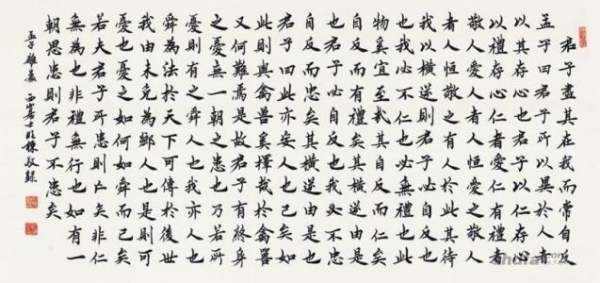 君子盡其在我而常自反
孟子曰君子所以異於人者
以其存心也君子以仁存心
以禮存心仁者愛人有禮者
敬人愛人者人恒愛之敬人
者人恒敬之有人於此其待
我以橫逆則君子必自反
也我必不仁也必無禮也此
物奚宜至哉其自反而仁矣
自反而有禮矣其橫逆由是
也君子必自反也我必不忠
自反而忠矣其橫逆由是也
君子曰此亦妄人也已矣如
此則與禽獸奚擇哉於禽獸
又何難焉是故君子有終身
之憂無一朝之患也乃若所
憂則有之舜人也我亦人也
舜為法於天下可傳於後世
我由未免為鄉人也是則可
憂也憂之如何如舜而已矣
若夫君子所患則亡矣非仁
無為也非禮無行也如有一
朝之患則君子不患矣
孟子離婁